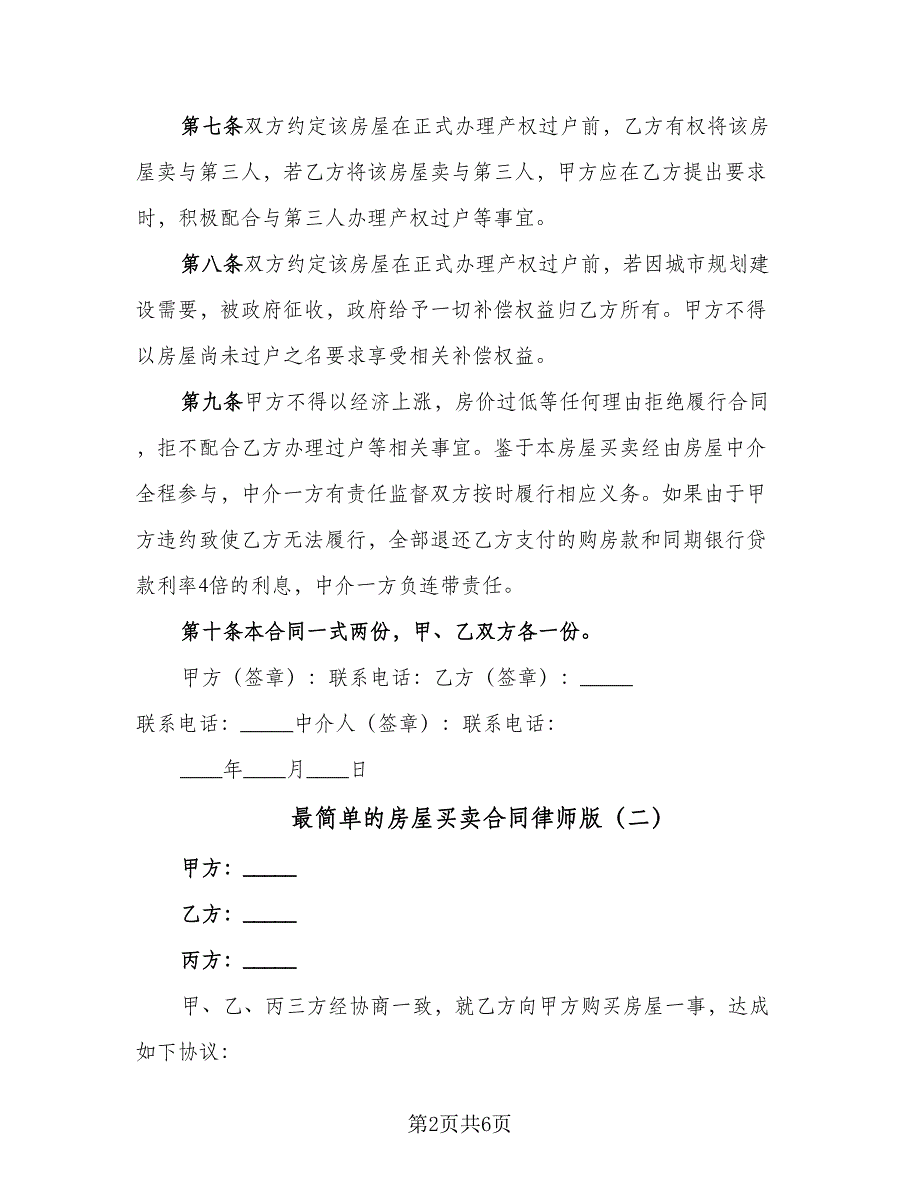 第七条双方约定该房屋在正式办理产权过户前，乙方有权将该房
屋卖与第三人，若乙方将该房屋卖与第三人，甲方应在乙方提出要求
时，积极配合与第三人办理产权过户等事宜。
第八条双方约定该房屋在正式办理产权过户前，若因城市规划建
设需要，被政府征收，政府给予一切补偿权益归乙方所有。甲方不得
以房屋尚未过户之名要求享受相关补偿权益。
第九条甲方不得以经济上涨，房价过低等任何理由拒绝履行合同
，拒不配合乙方办理过户等相关事宜。鉴于本房屋买卖经由房屋中介
全程参与，中介一方有责任监督双方按时履行相应义务。如果由于甲
方违约致使乙方无法履行，全部退还乙方支付的购房款和同期银行贷
款利率4倍的利息，中介一方负连带责任。
第十条本合同一式两份，甲、乙双方各一份。
甲方（签章）：联系电话：乙方（签章）：_____
联系电话：_____中介人（签章）：联系电话：
____年____月____日
最简单的房屋买卖合同律师版（二）
甲方：_____
乙方：_____
丙方：_____
甲、乙、丙三方经协商一致，就乙方向甲方购买房屋一事，达成
如下协议：
第2页共6页